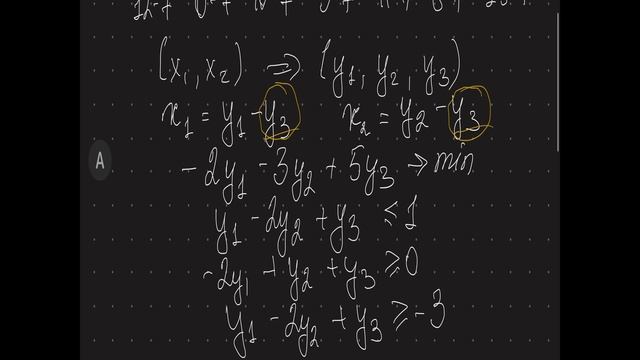 (x₁, x₂) ⇒ (y₁, y₂, y₃)
x₁ = y₁ - y₃ x₂ = y₂ - y₃
-2y₁ - 3y₂ + 5y₃ → min
y₁ - 2y₂ + y₃ ≤ 1
-2y₁ + y₂ + y₃ ≥ 0
y₁ - 2y₂ + y₃ ≥ -3
A